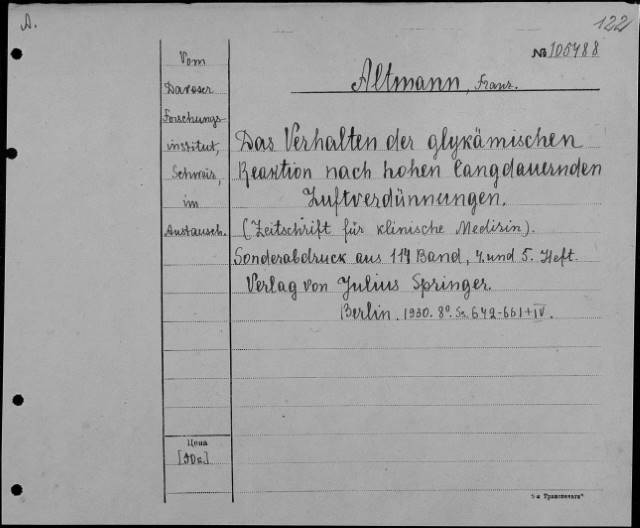 A.
122
№ 105488
Altmann, Franz.
Vom
Davoser
Forschungs-
institut,
Schweiz,
im
Austausch.
Das Verhalten der glykämischen
Reaktion nach hohen langdauernden
Luftverdünnungen.
(Zeitschrift für klinische Medizin).
Sonderabdruck aus 114 Band, 4. und 5. Heft.
Verlag von Julius Springer.
Berlin. 1930. 8°. Ss. 642-661+IV.
Цена
[90к.]